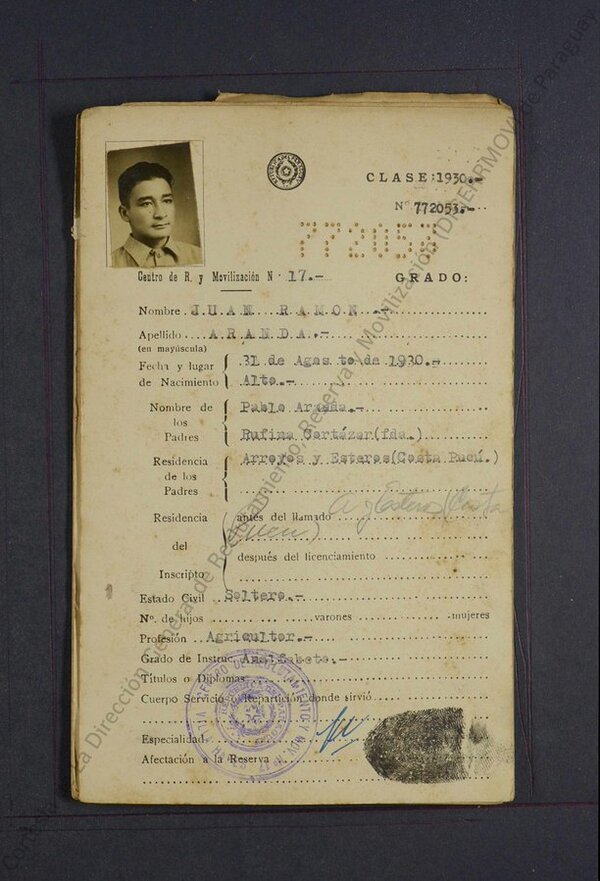 CLASE: 1930.-
Nº 772053.-
772053
Centro de R. y Movilización Nº 17.-
GRADO:
Nombre JUAN RAMON.-
Apellido ARANDA.-
(en mayúscula)
Fecha y lugar de Nacimiento 31 de Agosto de 1930.-
Alto.-
Nombre de los Padres Pablo Aranda.-
Rufina Cortázar(fda.)
Residencia de los Padres Arroyos y Esteros(Costa Pucú.)
Residencia del Inscripto antes del llamado A y Esteros (Costa
Pucú)
después del licenciamiento
Estado Civil Soltero.-
Nº. de hijos varones mujeres
Profesión Agricultor.-
Grado de Instruc. Analfabeto.-
Títulos o Diplomas
Cuerpo Servicio o Repartición donde sirvió
Especialidad
Afectación a la Reserva
La Dirección General de Reclutamiento, Reserva y Movilización (DIGERRMOV) de Paraguay